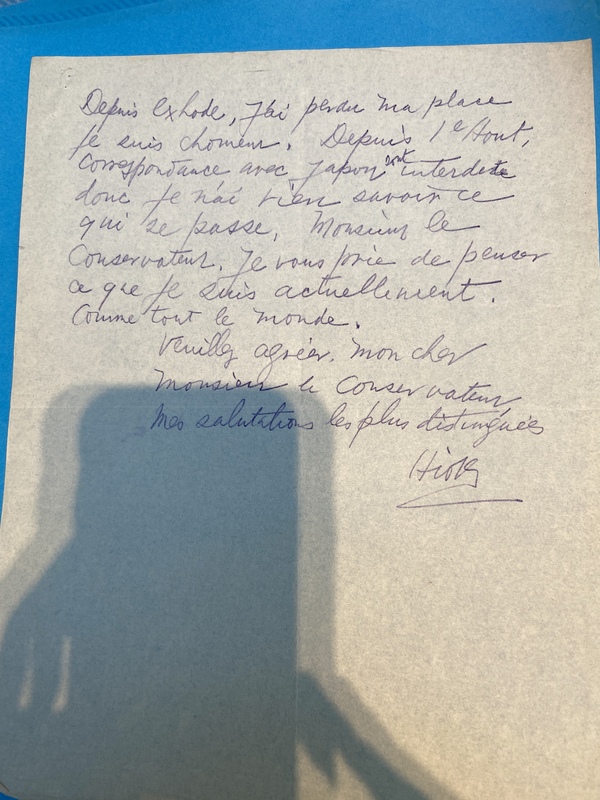 Depuis Exhode, j'ai perdu ma place
je suis chomeur. Depuis 1e Aout,
Correspondance avec Japon sont interdete
donc je n'ai rien savoir ce
qui se passe. Monsieur le
Conservateur. Je vous prie de penser
ce que je suis actuellement.
Comme tout le monde.
Veuillez agréer. mon cher
Monsieur le Conservateur
Mes salutations les plus distinguées